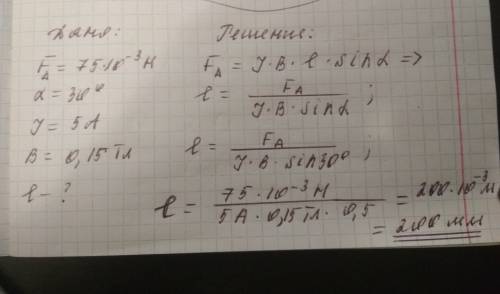 Дано:
F_A = 75·10⁻³ Н
α = 30°
J = 5 А
B = 0,15 Тл
ℓ - ?
Решение:
F_A = J·B·ℓ·sinα =>
ℓ = F_A / J·B·sinα ;
ℓ = F_A / J·B·sin30° ;
ℓ = 75·10⁻³ Н / 5А·0,15Тл·0,5 = 200·10⁻³ м
= 200 мм